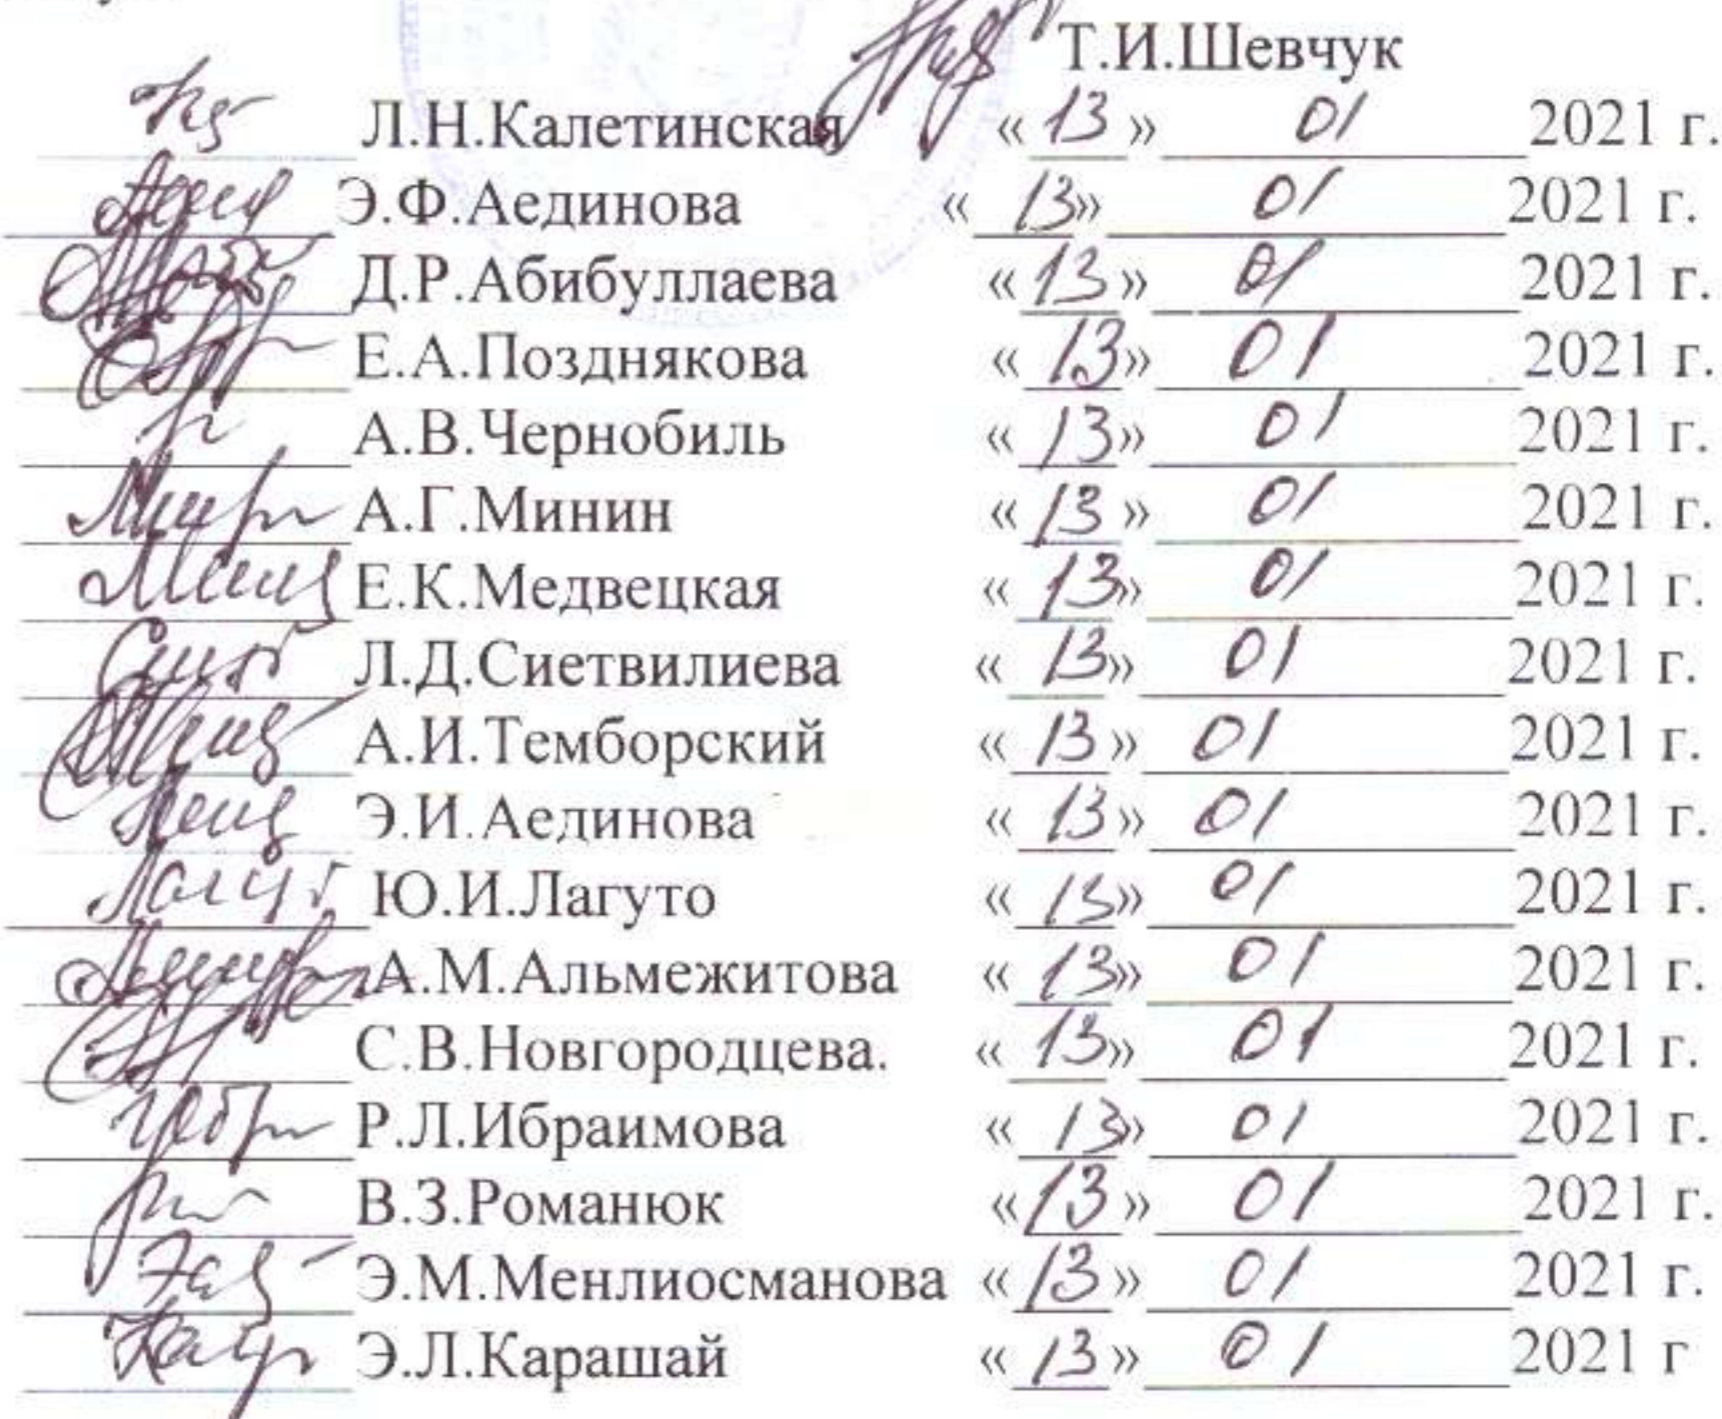 Т.И.Шевчук
Л.Н.Калетинская « 13 » 01 2021 г.
Э.Ф.Аединова « 13» 01 2021 г.
Д.Р.Абибуллаева «13 » 01 2021 г.
Е.А.Позднякова « 13» 01 2021 г.
А.В.Чернобиль « 13» 01 2021 г.
А.Г.Минин « 13 » 01 2021 г.
Е.К.Медвецкая « 13» 01 2021 г.
Л.Д.Сиетвилиева « 13» 01 2021 г.
А.И.Темборский « 13» 01 2021 г.
Э.И.Аединова « 13» 01 2021 г.
Ю.И.Лагуто « 13» 01 2021 г.
А.М.Альмежитова « 13» 01 2021 г.
С.В.Новгородцева. « 13» 01 2021 г.
Р.Л.Ибраимова « 13» 01 2021 г.
В.З.Романюк «13 » 01 2021 г.
Э.М.Менлиосманова «13 » 01 2021 г.
Э.Л.Карашай « 13 » 01 2021 г